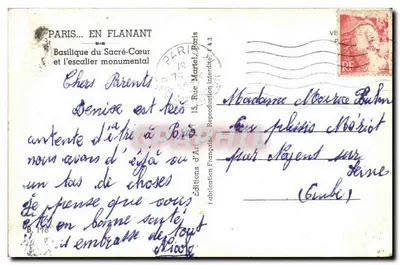 PARIS... EN FLANANT
Basilique du Sacré-Cœur
et l'escalier monumental
Chers Parents
Denise est très
contente d'être à Paris
nous avons déjà vu
un tas de choses
Je pense que vous
êtes en bonne santé
embrasse de tout
Editions d'Art 15, Rue Martel, Paris
Fabrication Française - Reproduction Interdite
PARIS
Madame Maurice
Le plessis Mériot
par Nogent sur
Seine
(Aube)